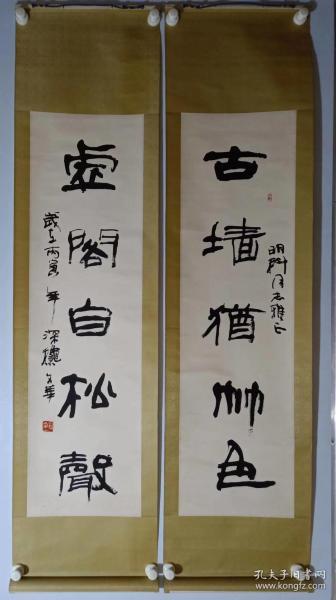 古墙犹竹色
明科同志雅正
虚阁自松声
岁在丙寅年
孔夫子旧书网
www.kongfz.com